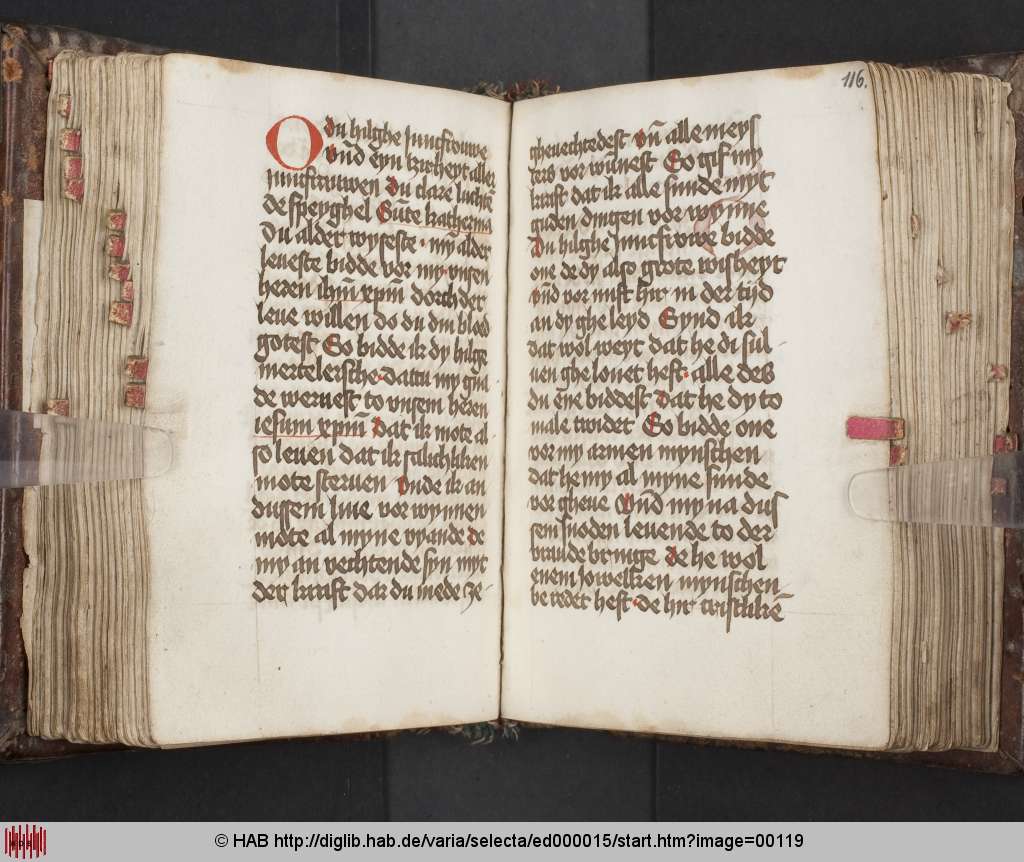 O du hilghe Juncfrouwe
vnd eyn kirheyt aller
juncfrauwen Du clare luchte
de speyghel Sūte katherina
Du alder wyseste · my alder
leueste bidde vor my vnsen
heren ihm xpm dorch der
leue willen do du din blod
gotest So bidde ik dy hilge
mertelersche · dattu my gna
de weruest to vnsem heren
iesum xpm Dat ik mote al
so leuen dat ik salichliken
mote steruen Vnde ik an
dussem liue vor wynnen
mote al myne vyande De
my an vechtende syn myt
der kraft dar du mede ze
gheuechtedest Vn alle meys
ters vor wunest So gif my
kraft dat ik alle sunde myt
guden dingen vor wynne
Du hilghe Juncfrowe bidde
one de dy also grote wisheyt
vnd vor nust hir in der tijd
an dy ghe leyd Synd ik
dat wol weyt dat he di sul
uen ghe louet heft · alle des
du ēne biddest Dat he dy to
male twidet So bidde one
vor my armen mynschen
dat he my al myne sunde
vor gheue Vnd my na dus
sem snoden leuende to der
vraude bringe De he wol
enem jowelken mynschen
be redet heft · de hir cristlikē
116.
© HAB http://diglib.hab.de/varia/selecta/ed000015/start.htm?image=00119